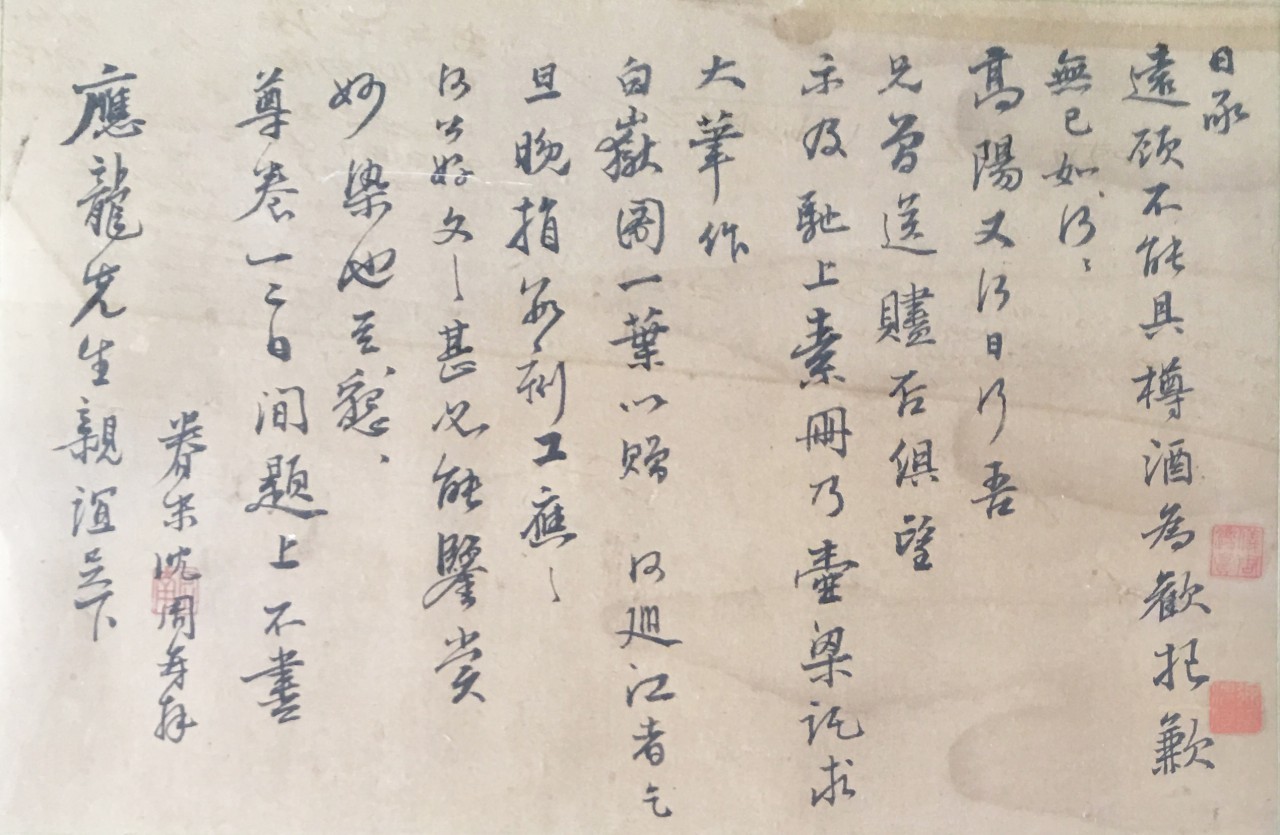 日承
遠顧不能具樽酒為歡抱歉
無已如何〻
高陽又行日行吾
兄曾送贐否俱望
示及馳上素冊乃壺梁託求
大筆作
白嶽圖一葉以贈 何廵江者乞
旦晚指教〻利工應〻
何公好文〻甚必能鑒賞
妙染也至懇〻
尊卷一二日間題上不盡
眷末沈周再拜
應龍先生親誼足下